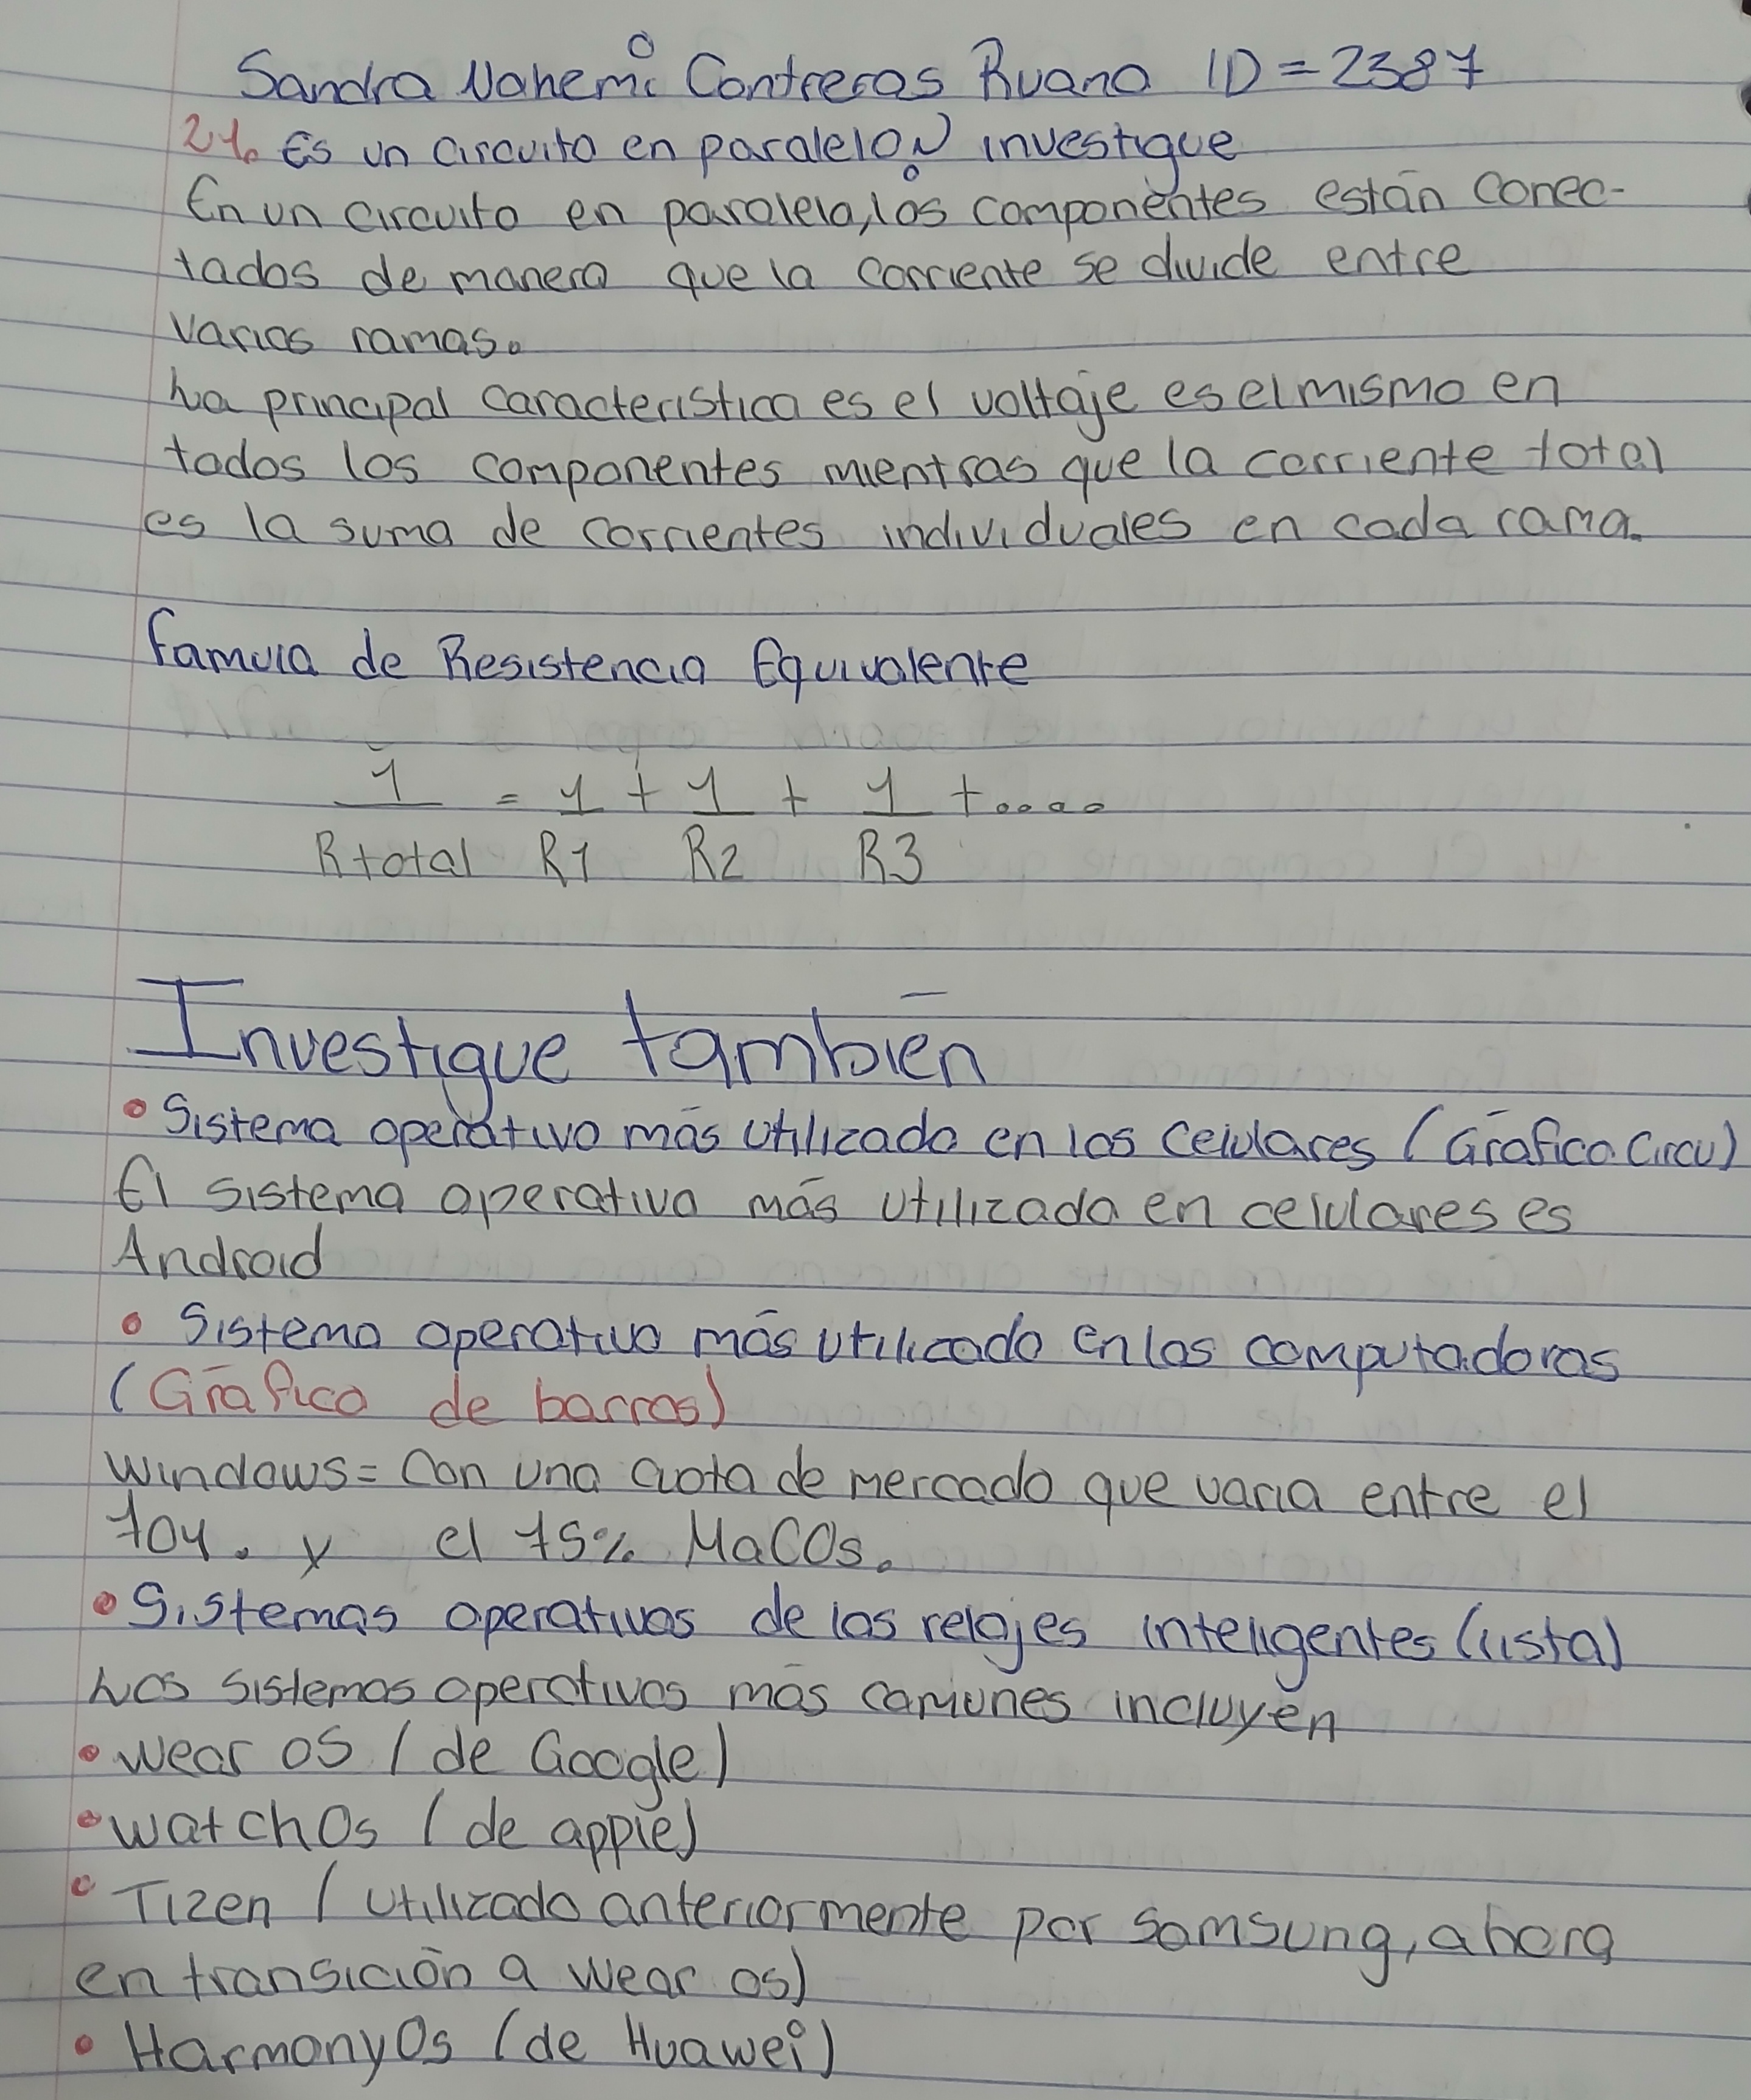 Sandra Nohemi Contreras Ruano ID = 2387
21. Es un circuito en paralelo, investigue
En un circuito en paralelo, los componentes están conec-
tados de manera que la corriente se divide entre
varias ramas.
La principal caracteristica es el voltaje es el mismo en
todos los componentes mientras que la corriente total
es la suma de corrientes individuales en cada rama.
Famula de Resistencia Equivalente
1 = 1 + 1 + 1 + ....
Rtotal R1 R2 R3
Investigue también
• Sistema operativo más utilizado en los celulares (Gráfico Circu)
El sistema operativo más utilizado en celulares es
Android
• Sistema operativo más utilizado en las computadoras
(Gráfico de barras)
Windows = Con una cuota de mercado que varia entre el
70%. y el 75% MaCOs.
• Sistemas operativos de los relojes inteligentes (lista)
Los sistemas operativos más comunes incluyen
• Wear OS (de Google)
• WatchOs (de apple)
• Tizen (utilizado anteriormente por Samsung, ahora
en transición a Wear os)
• HarmonyOs (de Huawei)